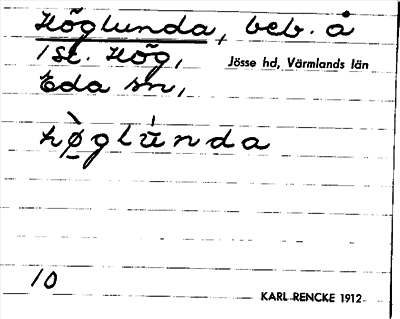 Höglunda, beb. å
1 sk. Hög, Jösse hd, Värmlands län
Eda sn,
hø̀glùnda
10
KARL RENCKE 1912